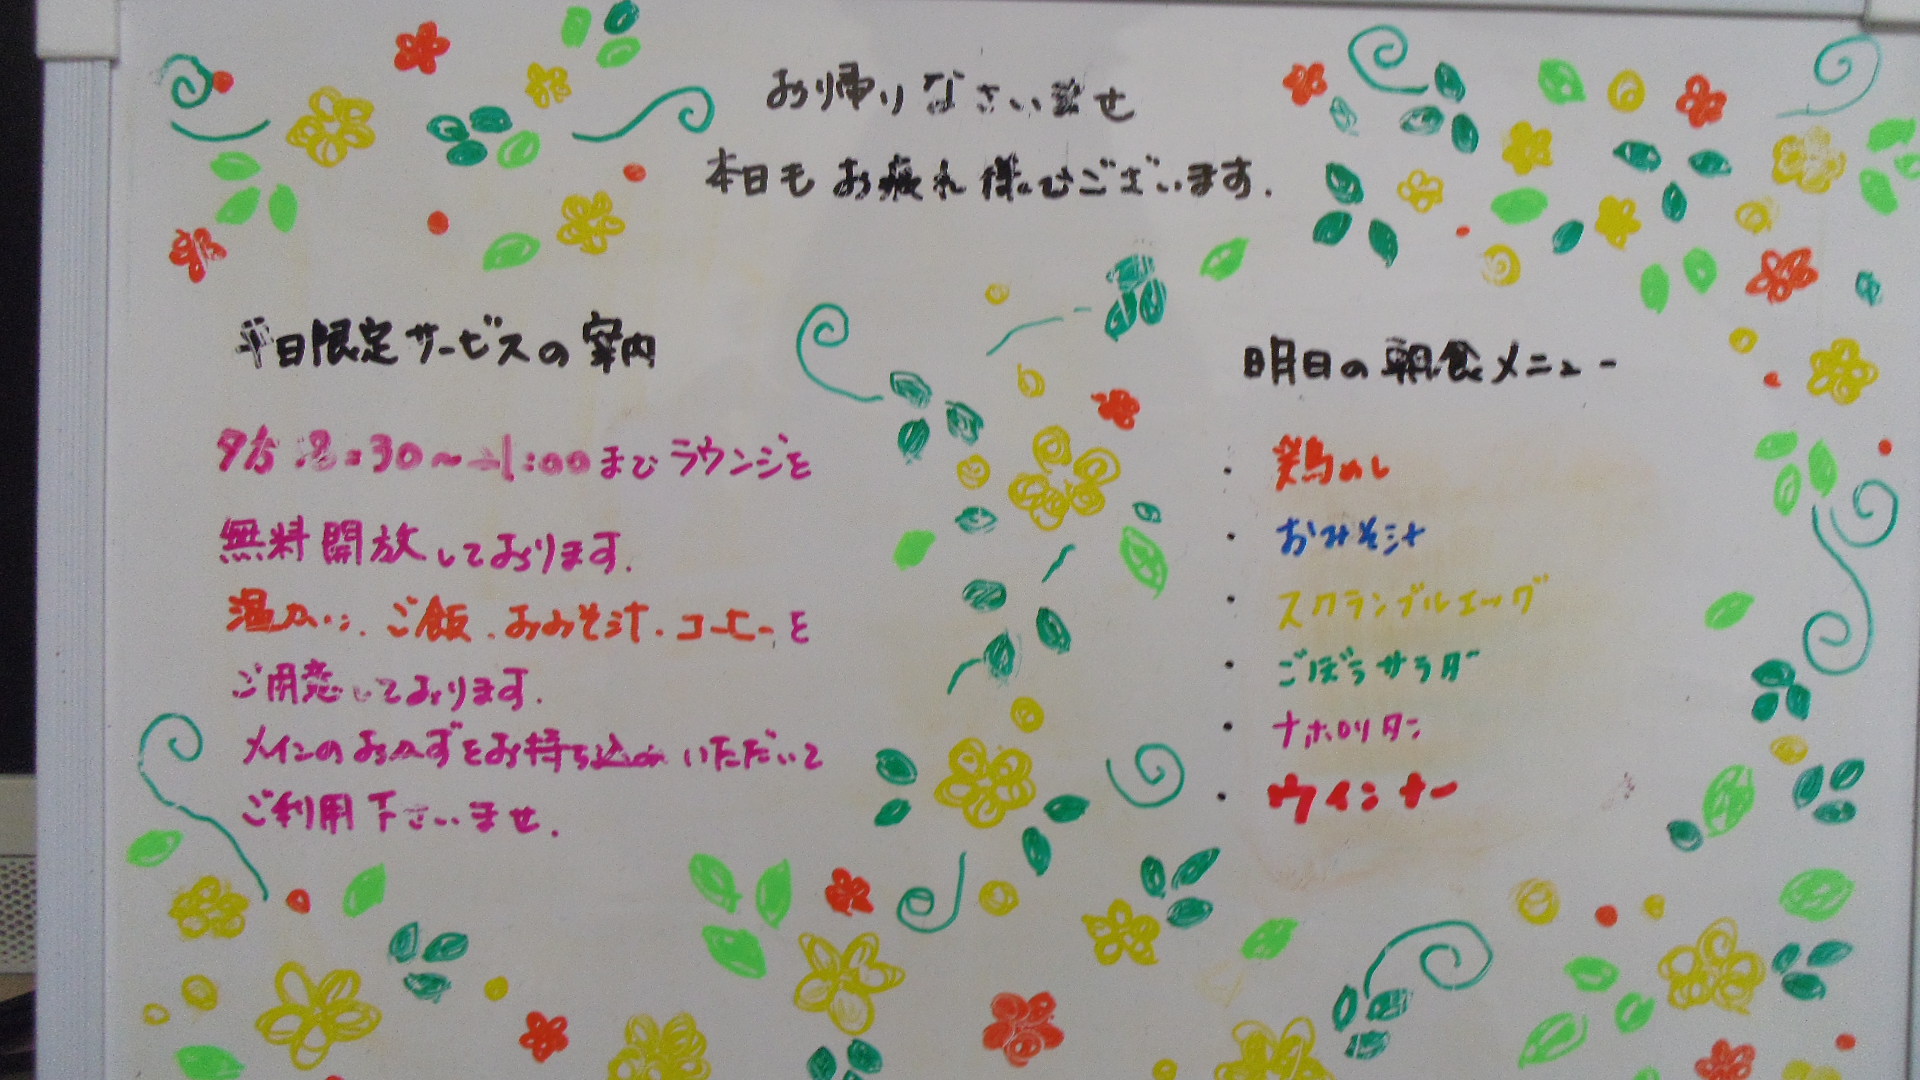 お帰りなさいませ
本日もお疲れ様でございます.
平日限定サービスの案内
夕方:8:30～11:00までラウンジを
無料開放しております.
温かい、ご飯、おみそ汁、コーヒーを
ご用意しております.
メインのおかずをお持ち込みいただいて
ご利用下さいませ.
明日の朝食メニュー
・鶏めし
・おみそ汁
・スクランブルエッグ
・ごぼうサラダ
・ナポリタン
・ウインナー